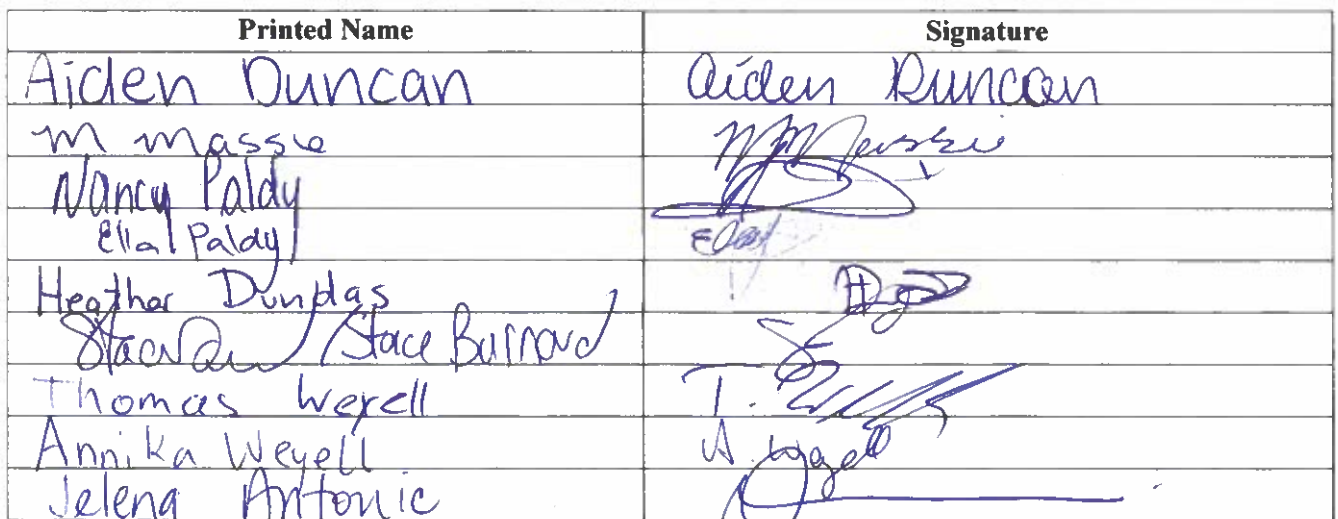 Printed Name Signature
Aiden Duncan Aiden Duncan
M Massie
Nancy Paldy
Ella Paldy
Heather Dundas
Stace Burnard
Thomas Weyell T.
Annika Weyell A. Weyell
Jelena Antonic